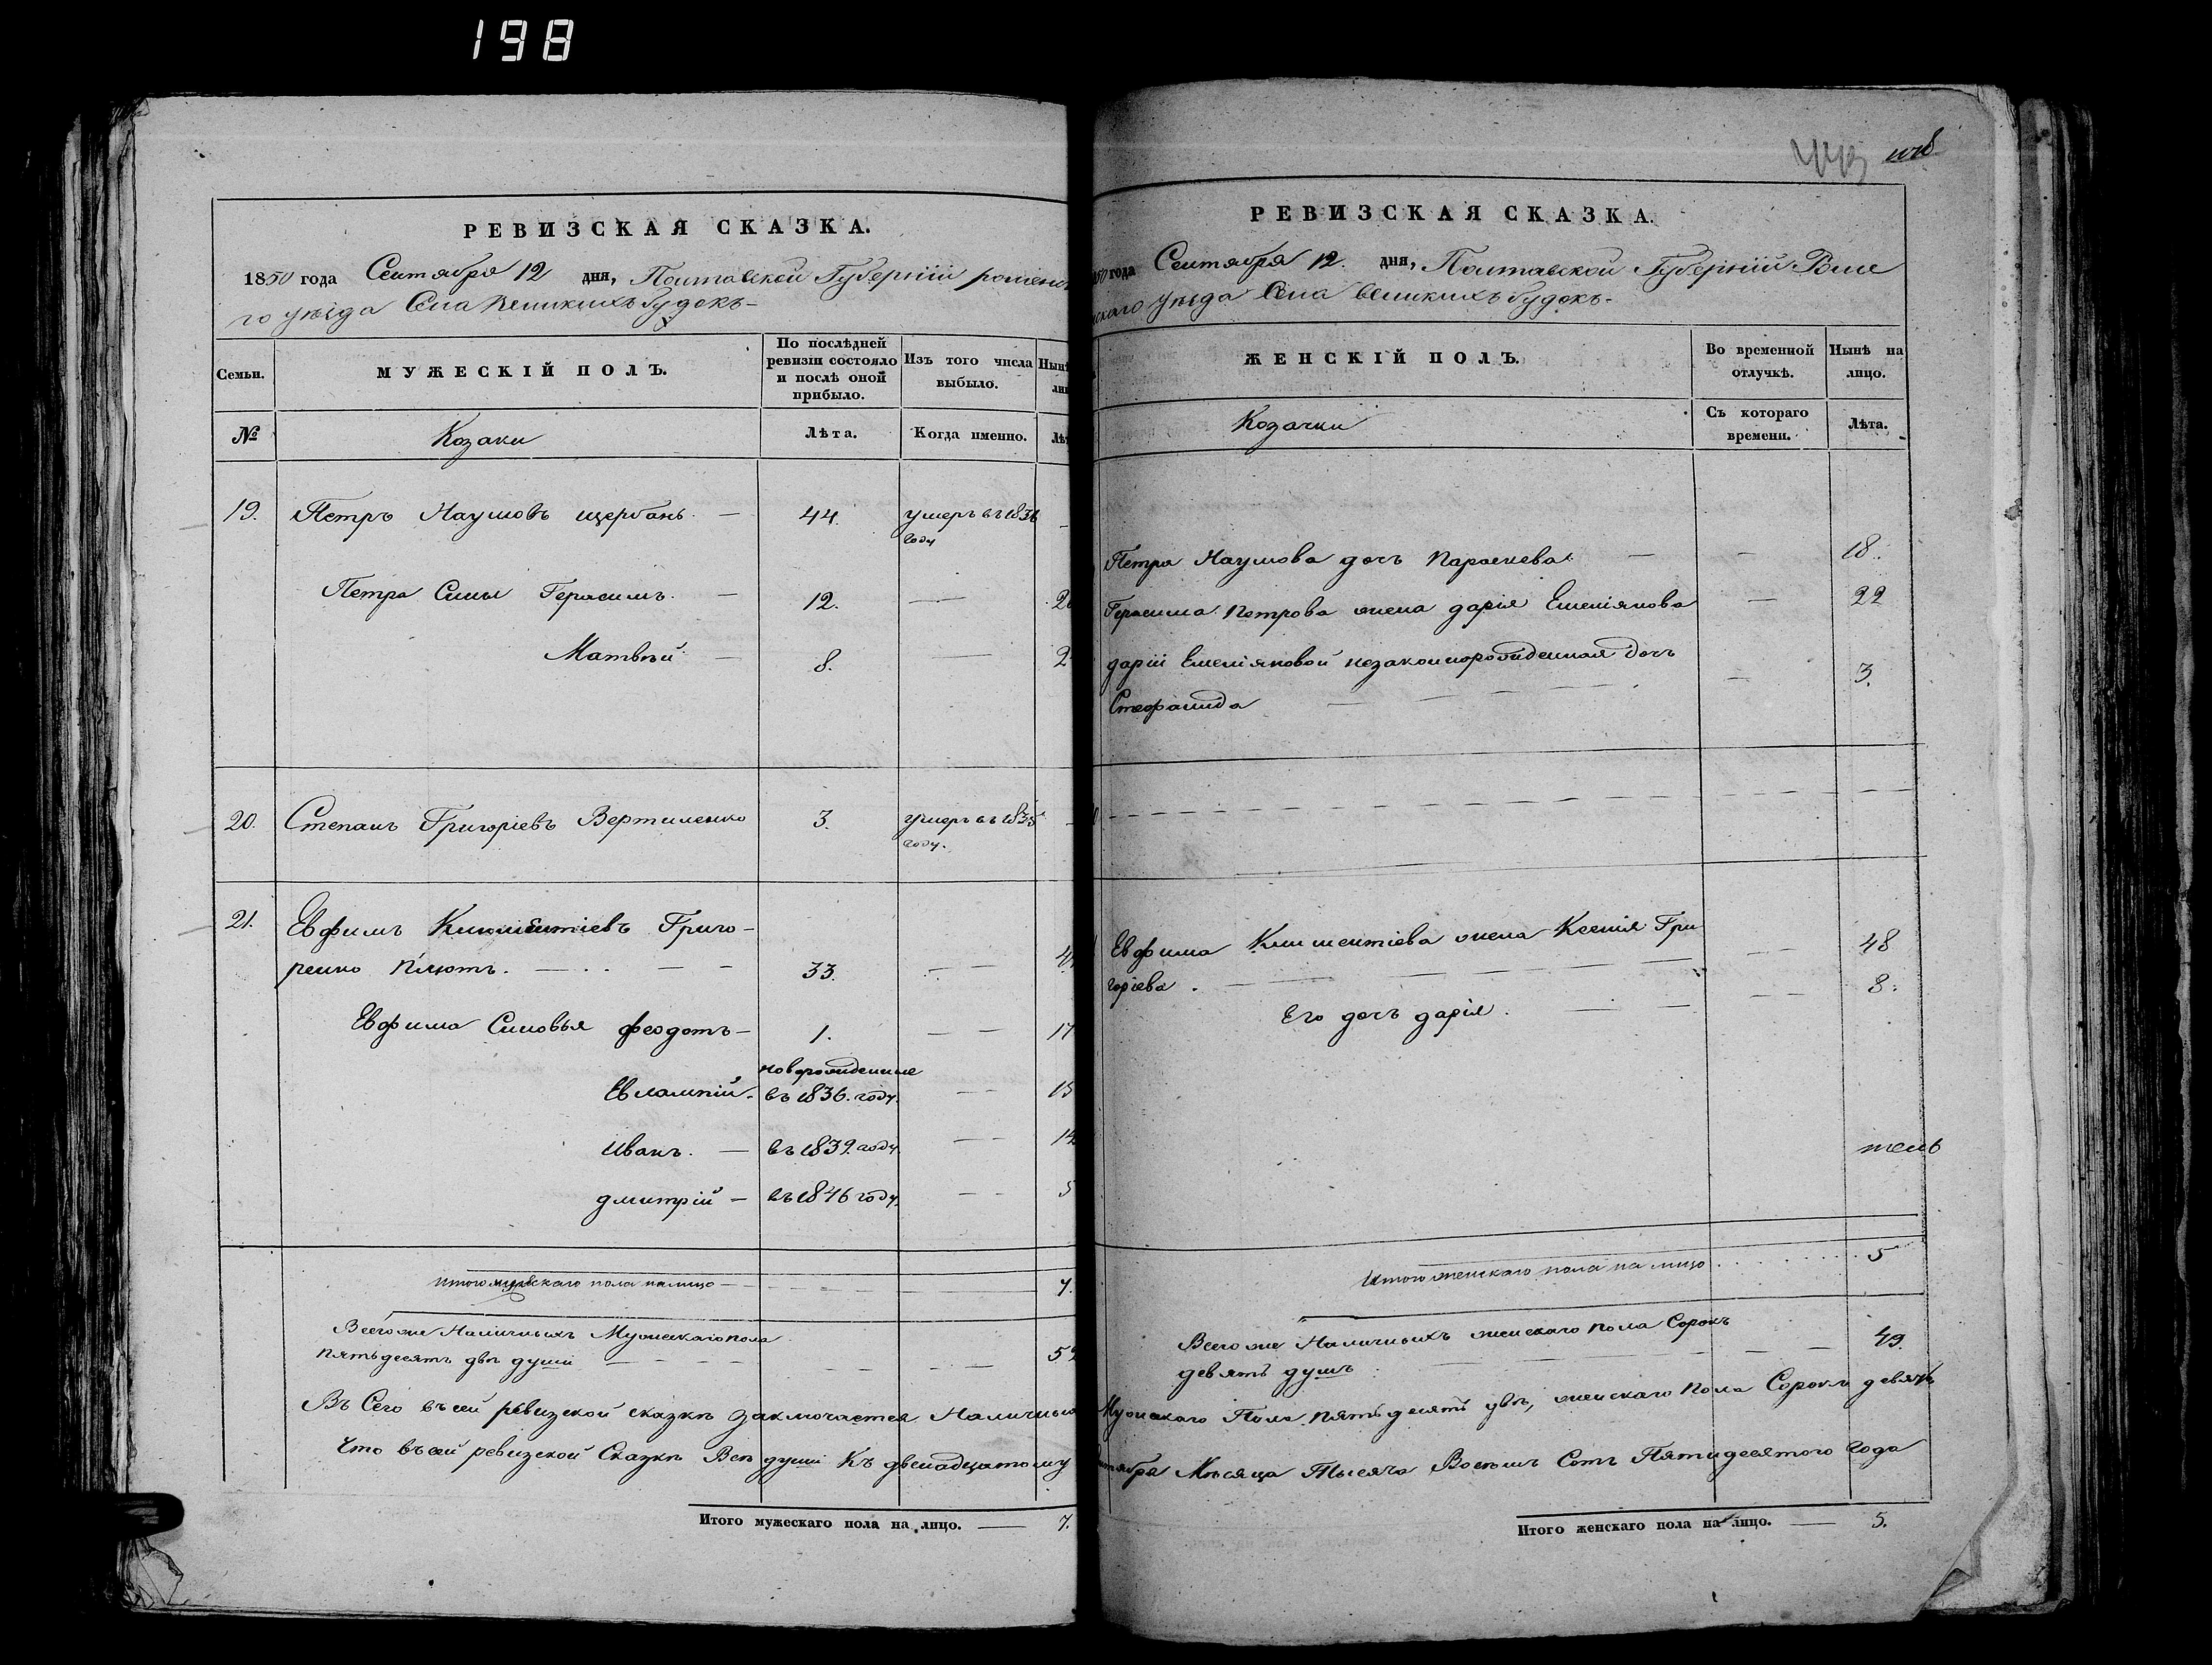 198
РЕВИЗСКАЯ СКАЗКА.
1850 года Сентября 12 дня, Полтавской Губерніи роменска
го уѣзда Села Великихъ Будокъ-
Семьи.
МУЖЕСКІЙ ПОЛЪ.
По послѣдней
ревизіи состояло
и послѣ оной
прибыло.
Изъ того числа
выбыло.
№
Козаки
Лѣта.
Когда именно.
19. Петръ Наумовъ щербань. — 44. умеръ въ 1836
году
Петра Сины Герасимъ. — 12. —
Матвѣй — 8. —
20. Степанъ Григоріевъ Вертиленко 3. умеръ въ 1835
году.
21. Евфимъ Климентіевъ Григо-
ренко Плютъ. — 33. —
Евфима Синовья феодотъ — 1. — 17
новорожденние
Евлампій. въ 1836. году. — 15
Иванъ. — въ 1839 году — 12
дмитрій — въ 1846 году. — 5
Итого мужескаго пола налицо — 7.
Всего же Наличныхъ Мужескаго пола
пятьдесятъ двѣ души — 52
Въ Сего въ сей ревизской сказкѣ заключается Наличныхъ
Что въ сей ревизской Сказкѣ Всѣ души Къ двенадцатому
Итого мужескаго пола на лицо. — 7.
443
РЕВИЗСКАЯ СКАЗКА.
1850 года Сентября 12. дня, Полтавской Губерніи Роме
нскаго уѣзда Села Великихъ Будокъ-
ЖЕНСКІЙ ПОЛЪ.
Во временной
отлучкѣ.
Нынѣ на
лицо.
Козачки
Съ котораго
времени.
Лѣта.
Петра Наумова дочь Параскева. — — 18.
Герасима Петрова жена дарія Емеліянова — 22
даріи Емеліяновой незаконнорожденная дочь
Стефанида — — 3.
Евфима Климентіева жена Ксенія Гри
горіева. — 48
Его дочь дарія. — 8.
Итого женскаго пола на лицо . . . . . 5
Всего же Наличныхъ женскаго пола Сорокъ
девять душъ — 49.
Мужескаго Пола пятьдесятъ двѣ, женскаго пола Сорокъ девять
Сентября Мѣсяца Тысяча Восемь Сотъ Пятидесятого года
Итого женскаго пола на лицо. — 5.